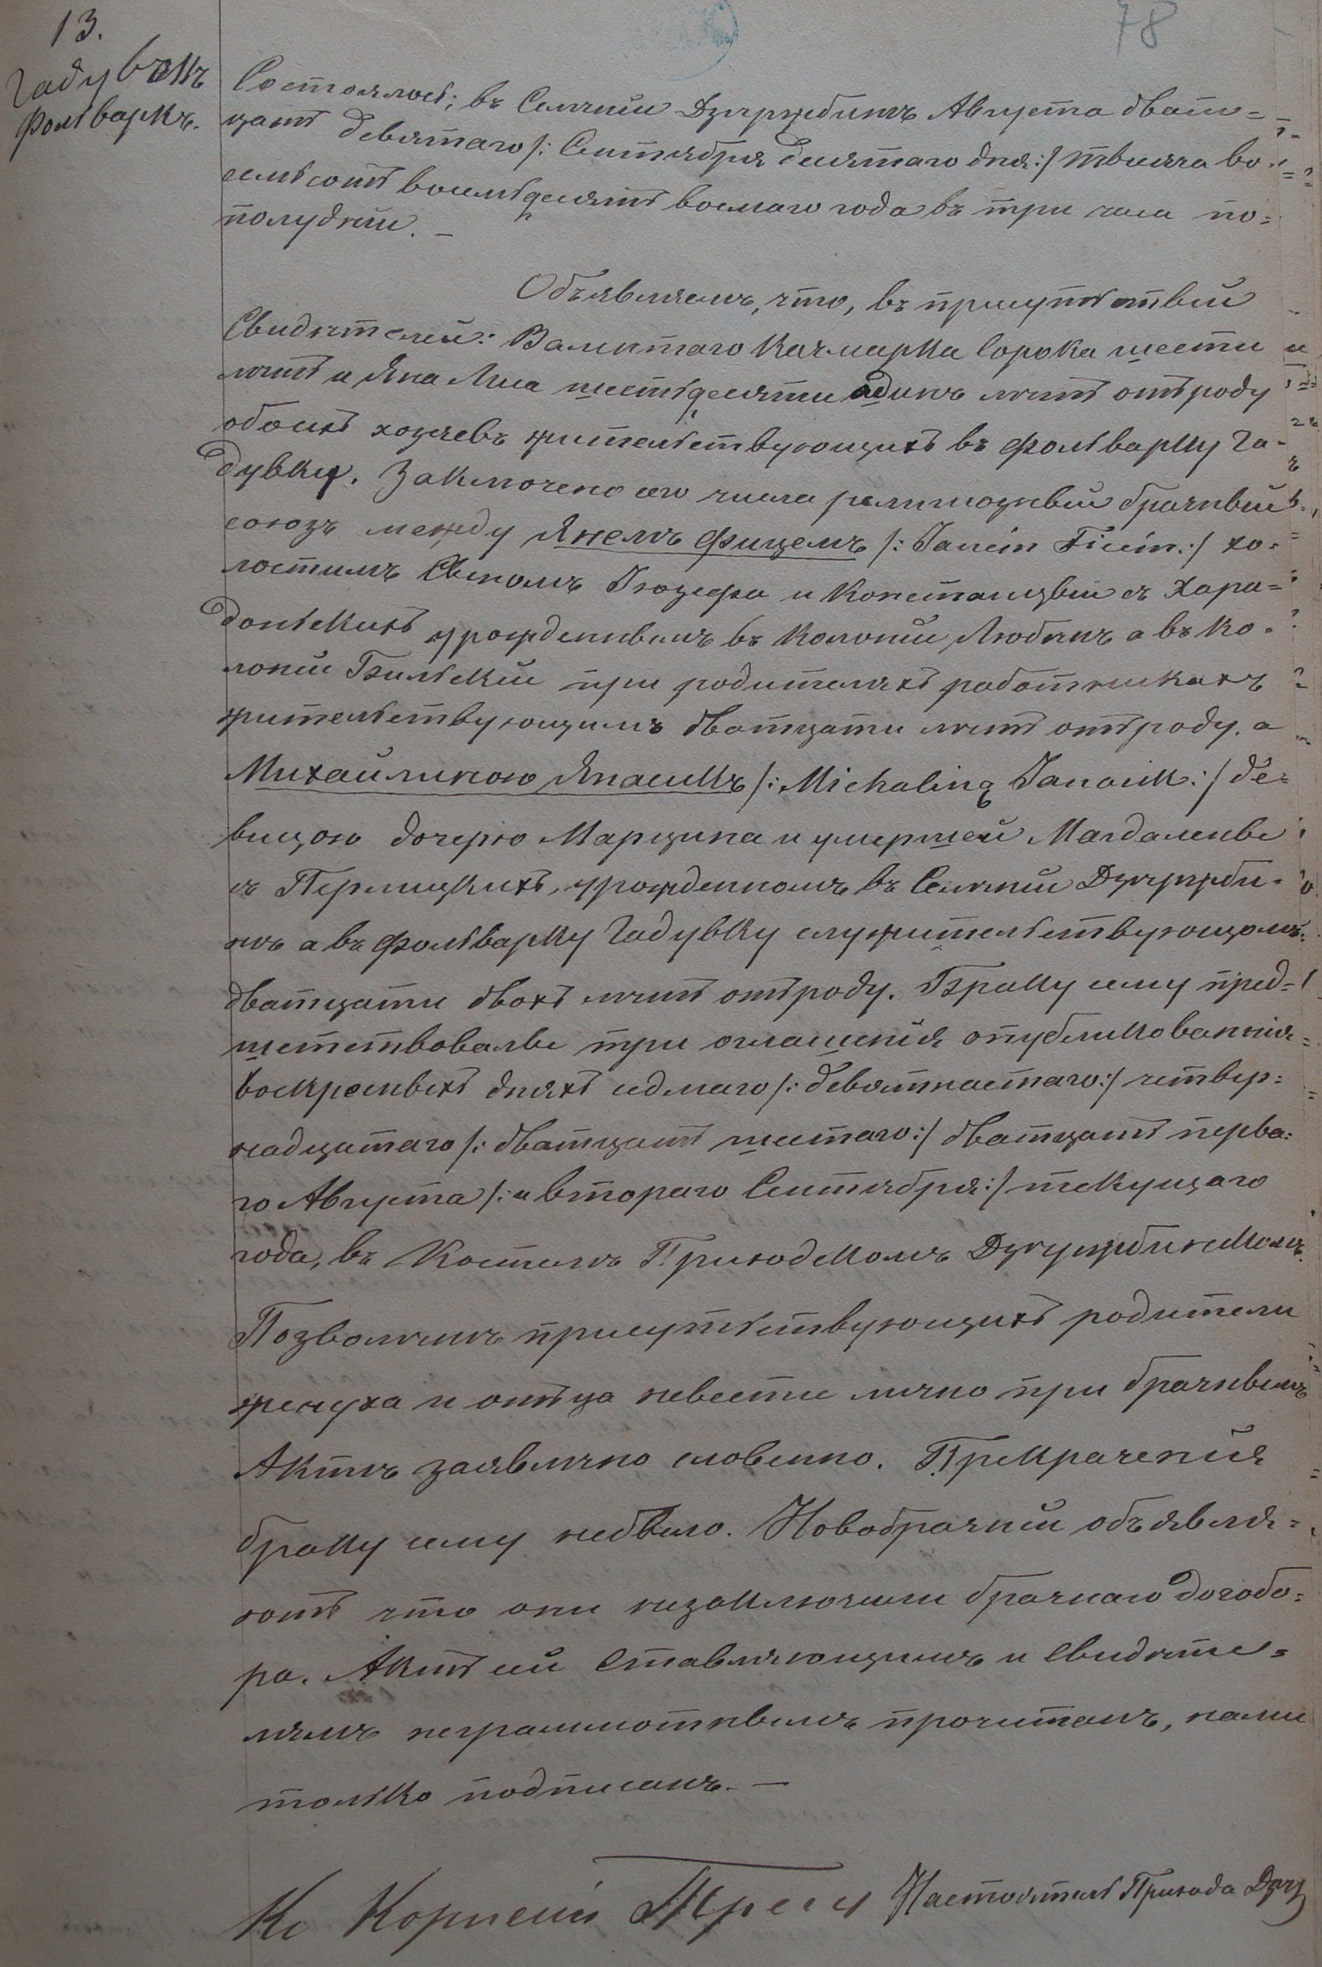 13.
78
Гадувекъ
Фольваркъ.
Состоялось; въ Селенiи Дзержбинъ Августа двать=
цать девятаго /: Сентября десятаго дня:/ тысяча во=
семьсотъ восемьдесятъ восмаго года въ три часа по=
полудни. —
Объявляемъ, что, въ присутствiи
Свидѣтелей: Валентаго Качмарка сорока шести
лѣтъ и Яна Лиса шестьдесяти одинъ лѣтъ отъ роду
обоихъ хозяевъ жительствующихъ въ фольварку Га=
дувку. Заключено сего числа религiозный брачный
союзъ между Янемъ Фицемъ /: Janem Ficem:/ хо=
лостимъ Сыномъ Iюзефа и Констанцыи съ Хара=
доньскихъ урожденнымъ въ Колонiи Любинъ а въ Ко=
лонiи Бильскiй при родителяхъ работникахъ
жительствующимъ дватцати лѣтъ отъ роду. а
Михайлиною Янасикъ /: Michaliną Janasik:/ дѣ=
вицою дочерю Марцина и умершей Магдалены
съ Пермицкихъ, урожденномъ въ Селенiи Дзержби=
нъ а въ фольварку Гадувку служительствующомъ
дватцати двохъ лѣтъ отъ роду. Браку сему пред=
шетствовалы три оглашенiя опубликованныя
воскресныхъ дняхъ седмаго /: девятнастаго:/ четвер=
надцатаго /: дватцать шестаго:/ дватцать перва=
го Августа /: и втораго Сентября:/ текущаго
года, въ Костелѣ Приходскомъ Дзержбинскомъ.
Позволѣнъ присутствующихъ родители
жениха и отьца невести лично при брачнымъ
Актѣ заявлѣно словесно. Прекраченiя
браку сему небыло. Новобрачнiи объявля=
ютъ что они незаключили брачнаго догово=
ра. Актъ сiй Ставляющимъ и Свидѣте=
лямъ неграмотнымъ прочитанъ, нами
только подписанъ. —
Кс Корнелiй Настоятель Прихода